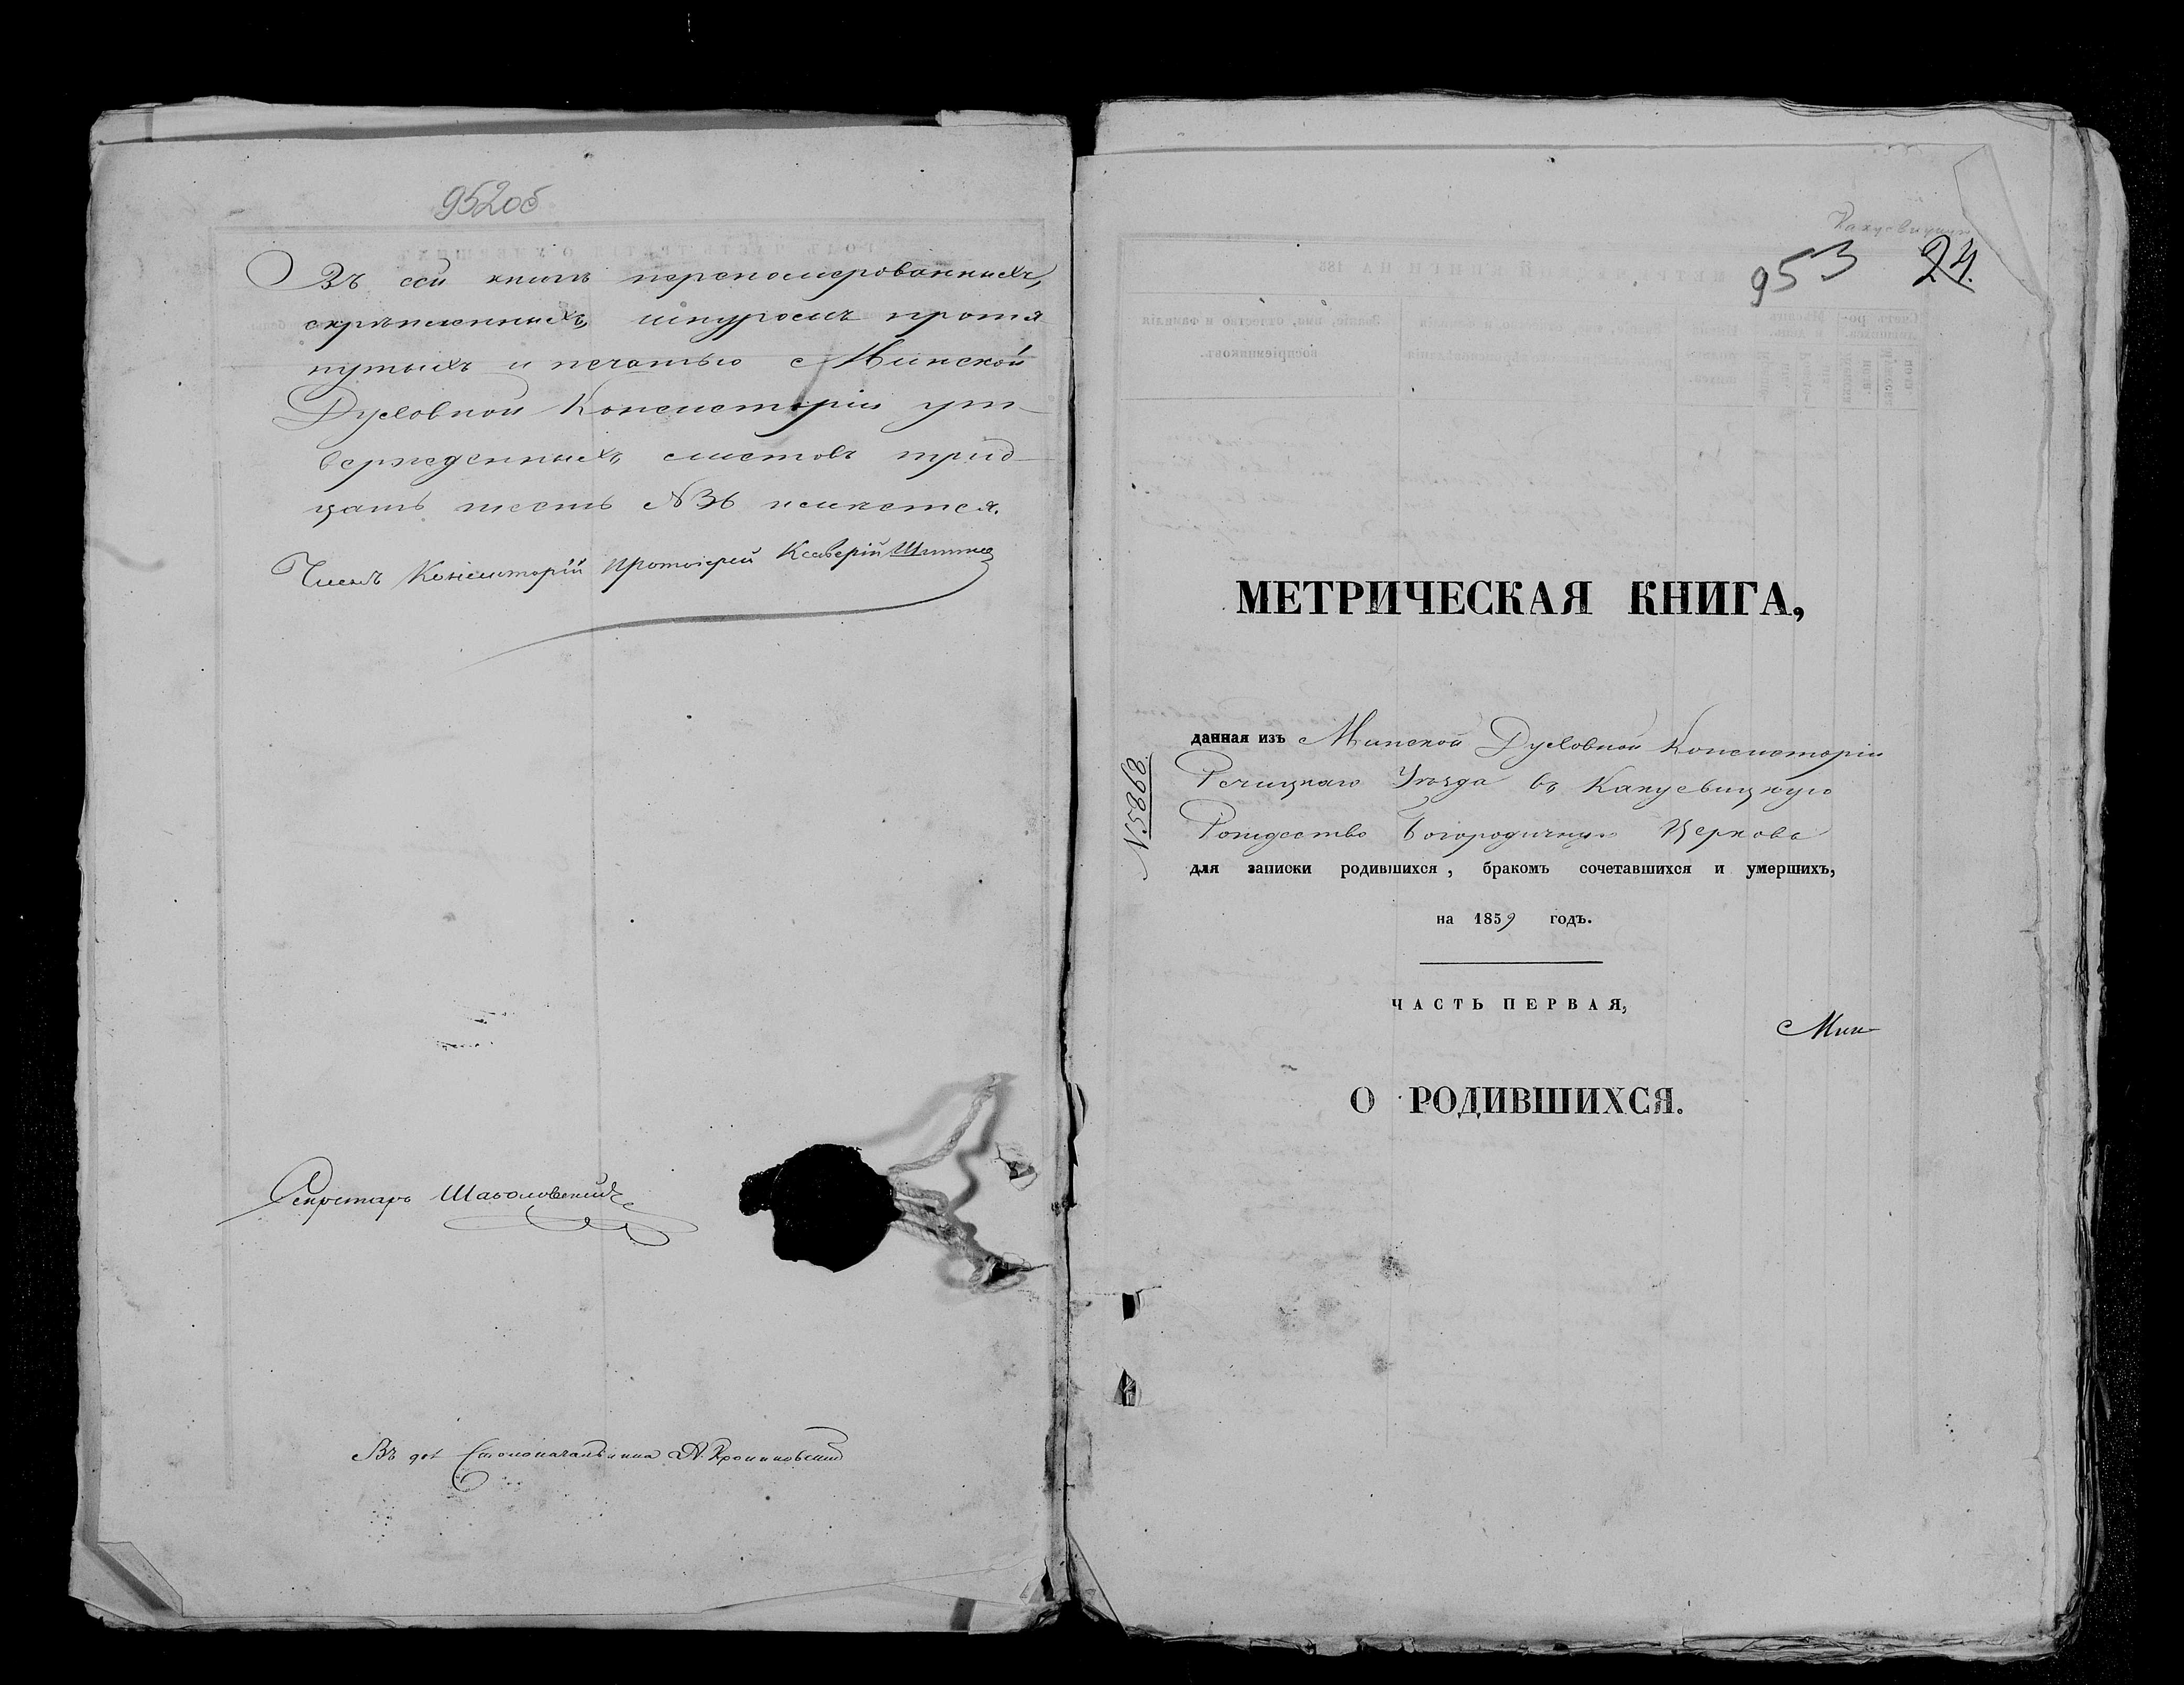 952об
Въ сей книгѣ переномерованныхъ,
скрѣпленныхъ, шнуромъ протя
нутыхъ и печатью Минской
Духовной Консисторіи ут-
вержденныхъ, листовъ трид-
цать шесть №36 имѣется.
Членъ Консисторіи Протоіерей Ксаверій
Секретарь
Въ дол Столоначальника А.
953 24.
МЕТРИЧЕСКАЯ КНИГА,
№5868
данная изъ Минской Духовной Консисторіи
Речицкаго Уѣзда въ Какуевицкую
Рождество Богородичную Церковь
для записки родившихся, бракомъ сочетавшихся и умершихъ,
на 1859 годъ.
ЧАСТЬ ПЕРВАЯ,
Мин
О РОДИВШИХСЯ.